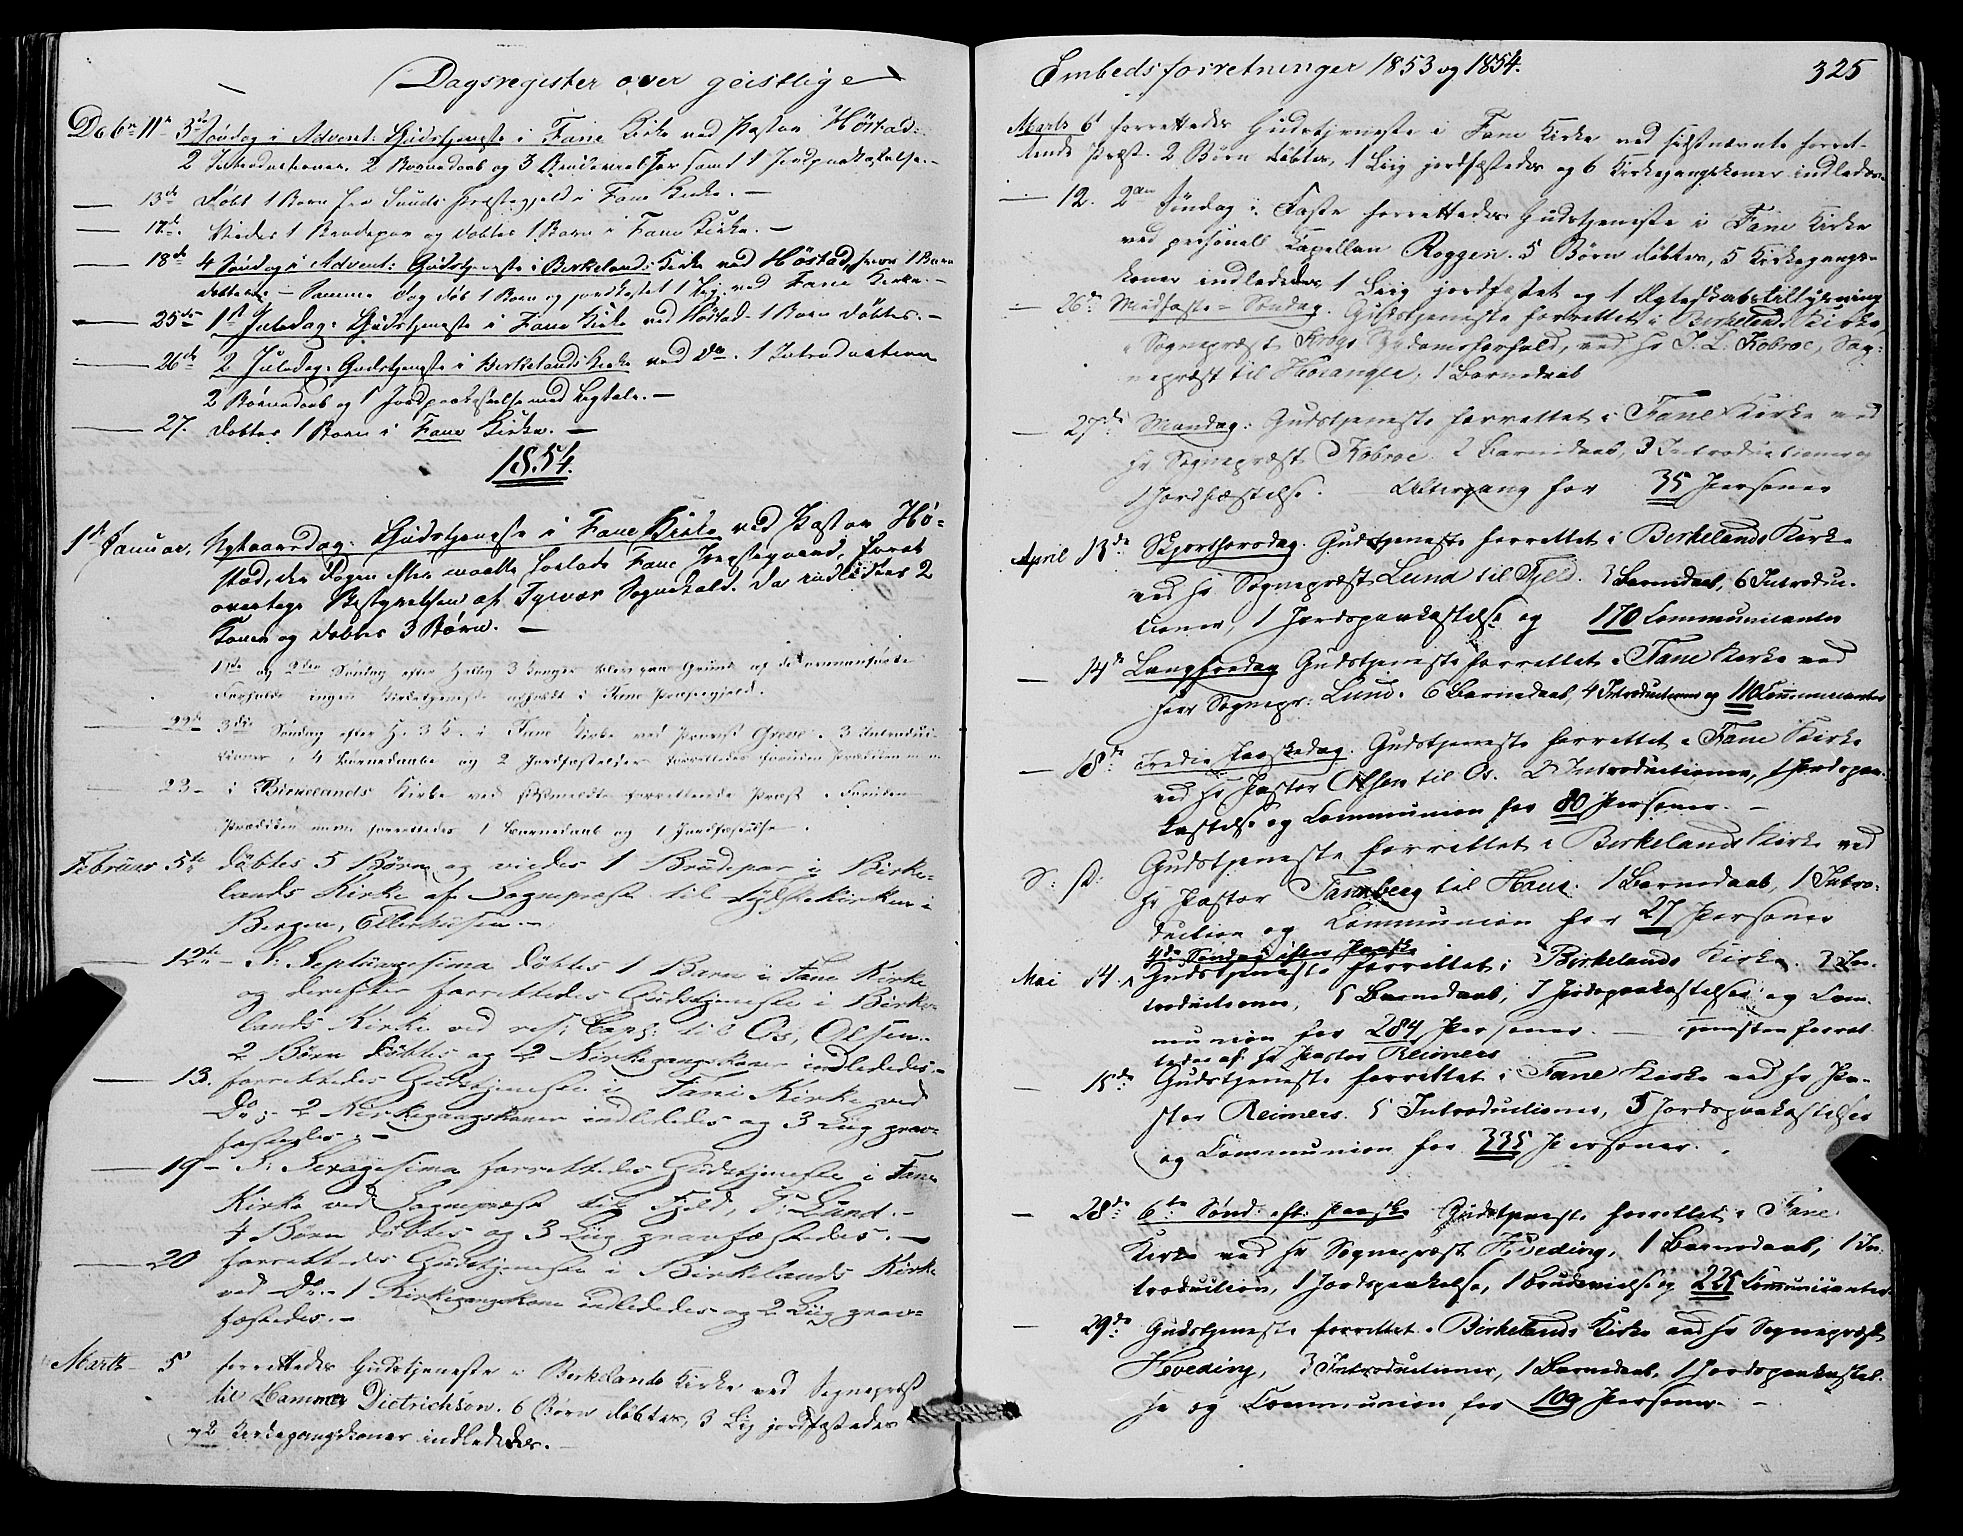 Dagsregister over geistlige
Dcbr 11te 3die Søndag i Advent: Gudstjeneste i Fane Kirke ved Pastor Høstad:
2 Introductioner, 2 Barnedaab og 3 Brudevielser samt 1 Jordpaakastelse.
— 13de Døbt 1 Barn fra Sunds Præstegjeld i Fane Kirke. —
— 17de. Viedes 1 Brudepar og døbtes 1 Barn i Fane Kirke. —
— 18de 4 Søndag i Advent: Gudstjeneste i Birkelands Kirke ved Høstad, hvor 1 Barn
døbtes. — Samme Dag døb 1 Barn og jordfæstet 1 Lig ved Fane Kirke. —
— 25de 1st Juledag: Gudstjeneste i Fane Kirke ved Høstad. 1 Barn døbtes. —
— 26de 2 Juledag: Gudstjeneste i Birkelands Kirke ved Do. 1 Introduction
2 Barnedaab og 1 Jordpaakastelse med Ligtale. —
— 27. døbtes 1 Barn i Fane Kirke. —
1854.
1ste Januar, Nytaarsdag: Gudstjeneste i Fane Kirke ved Pastor Hø-
stad, der Dagen efter maatte forlade Fane Præstegaard, for at
overtage Bestyrelsen af Tysvær Sognekald. Da indledtes 2
Koner og døbtes 3 Børn. —
1ste og 2den Søndag efter Hellig 3 Konger blev paa Grund af de ommanførte
Forholde ingen Kirketjeneste afholdt i Fane Præstegjeld.
— 22de 3die Søndag efter H. 3 K. i Fane Kirke ved Provst Greve. 3 Introduc-
tioner, 4 Barnedaabe og 2 Jordfæstelser forrettedes foruden Prædiken m m
— 23 — i Birkelands Kirke ved sidstmeldte forrettende Præst. Foruden
Prædiken m m forrettedes 1 Barnedaab og 1 Jordfæstelse.
Februar 5te døbtes 5 Børn og viedes 1 Brudepar i Birke-
lands Kirke af Sognepræst til Tydskekirken i
Bergen, Ellerhusen. —
— 12te — S: Septuagesima døbtes 1 Barn i Fane Kirke
og derefter forrettedes Gudstjeneste i Birke-
lands Kirke ved res: Cap: til Os, Olsen.
2 Børn døbtes og 2 Kirkegangskoner indlededes. —
— 13. forrettedes Gudstjeneste i Fane Kirke ved
Do; — 2 Kirkegangskoner indlededes og 3 Liig grav-
fæstedes; —
— 19 — S: Sexagesima forrettedes Gudstjeneste i Fane
Kirke ved Sognepræst til Fjeld, T: Lund. —
4 Børn døbtes og 3 Liig gravfæstedes. —
— 20 forrettedes Gudstjeneste i Birkelands Kirke
ved Do. — 1 Kirkegangskone indlededes og 2 Liig grav-
fæstedes. —
Marts — 5' forrettedes Gudstjeneste i Birkelands Kirke ved Sognepræst
til Hammer Dietrichson. 6 Børn døbtes, 3 Lig jordfæstedes
og 2 Kirkegangskoner indlededes. —
Embedsforretninger 1853 og 1854. 325
Marts 6' forrettedes Gudstjeneste i Fane Kirke ved sidstnævnte forret-
tende Præst. 2 Børn døbtes, 1 Liig jordfæstedes og 6 Kirkegangskoner indlededes
— 12. 2den Søndag i Faste forrettedes Gudstjeneste i Fane Kirke
ved personell Kapellan Roggen. 5 Børn døbtes, 5 Kirkegangs-
koner indlededes, 1 Liig jordfæstet og 1 Ægteskabstillysning
— 26de Midfaste-Søndag. Gudstjeneste forrettet i Birkelands Kirke,
i Sognepræst Krogs Sygdomsforfald, ved Hr J. L. Kobroe, Sog-
nepræst til Høeranger, 1 Barnedaab
— 27de Mandag: Gudstjeneste forrettet i Fane Kirke ved
Hr Sognepræst Kobroe. 2 Barnedaab, 3 Introductioner og
1 Jordfæstelse. — Altergang for 35 Personer
April 13de Skjærthorsdag. Gudstjeneste forrettet i Birkelands Kirke
ved Hr Sognepræst Lund til Fjeld. 3 Barnedaab, 6 Introduc-
tioner, 1 Jordspaakastelse og 170 Communicanter
— 14de Langfredag Gudstjeneste forrettet i Fane Kirke ved
Herr Sognepr: Lund. 6 Barnedaab, 4 Introductioner og 110 Communicanter
— 18de Tredie Paaskedag. Gudstjeneste forrettet i Fane Kirke
ved Hr Pastor Olsen til Os. 2 Introductioner, 1 Jordspaa-
kastelse og Communion for 80 Personer. —
S: D: Gudstjeneste forrettet i Birkelands Kirke ved
Hr Pastor Tannberg til Haus. 1 Barnedaab, 1 Intro-
duction og Communion for 27 Personer
4de Søndag efter Paaske
Mai 14. Gudstjeneste forrettet i Birkelands Kirke. 3 In-
troductioner, 5 Barnedaab, 7 Jordspaakastelser og Com-
munion for 284 Personer. — Tjenesten forret-
tedes af Hr Pastor Reimers
— 15de Gudstjeneste forrettet i Fane Kirke ved Hr Pa-
stor Reimers. 5 Introductioner, 5 Jordspaakastelser
og Communion for 335 Personer.
— 28de 6te Sønd. eft. Paaske Gudstjeneste forrettet i Fane
Kirke ved Hr Sognepræst Hveding, 1 Barnedaab, 1 In-
troduction, 1 Jordspaakastelse, 1 Brudevielse og 225 Communicanter
— 29de Gudstjeneste forrettet i Birkelands Kirke ved Hr Sognepræst
Hveding, 3 Introductioner, 1 Barnedaab, 1 Jordspaakastel-
se og Communion for 109 Personer. —